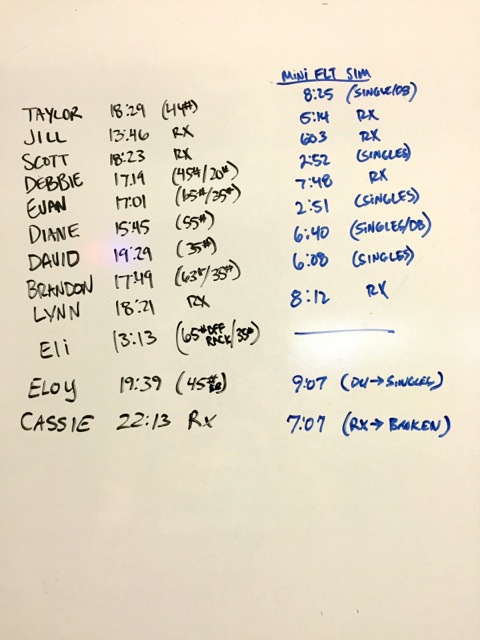 MINI FLT SIM
TAYLOR 18:29 (44#) 8:25 (SINGLE/DB)
JILL 13:46 RX 5:14 RX
SCOTT 18:23 RX 6:03 RX
DEBBIE 17:19 (45#/20#) 2:52 (SINGLES)
EVAN 17:01 (65#/35#) 7:48 RX
DIANE 15:45 (55#) 2:51 (SINGLES)
DAVID 19:29 (35#) 6:40 (SINGLES/DB)
BRANDON 17:49 (63#/35#) 6:08 (SINGLES)
LYNN 18:21 RX 8:12 RX
Eli 13:13 (65# OFF RACK/35#)
ELOY 19:39 (45#) 9:07 (DU→SINGLES)
CASSIE 22:13 RX 7:07 (RX→BROKEN)